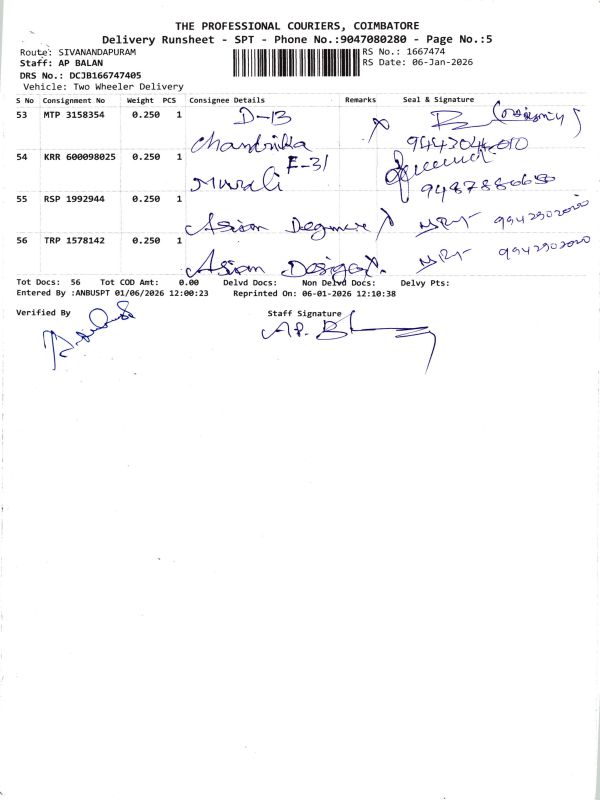 THE PROFESSIONAL COURIERS, COIMBATORE
Delivery Runsheet - SPT - Phone No.:9047080280 - Page No.:5
Route: SIVANANDAPURAM
RS No.: 1667474
Staff: AP BALAN
RS Date: 06-Jan-2026
DRS No.: DCJB166747405
Vehicle: Two Wheeler Delivery
S No Consignment No Weight PCS Consignee Details Remarks Seal & Signature
53 MTP 3158354 0.250 1 D-13
Chandrika
54 KRR 600098025 0.250 1 F-31
Murali 9487880650
55 RSP 1992944 0.250 1 Asian 9942902020
56 TRP 1578142 0.250 1 Asian 9942902020
Tot Docs: 56 Tot COD Amt: 0.00 Delvd Docs: Non Delvd Docs: Delvy Pts:
Entered By :ANBUSPT 01/06/2026 12:00:23 Reprinted On: 06-01-2026 12:10:38
Verified By Staff Signature
AP. B